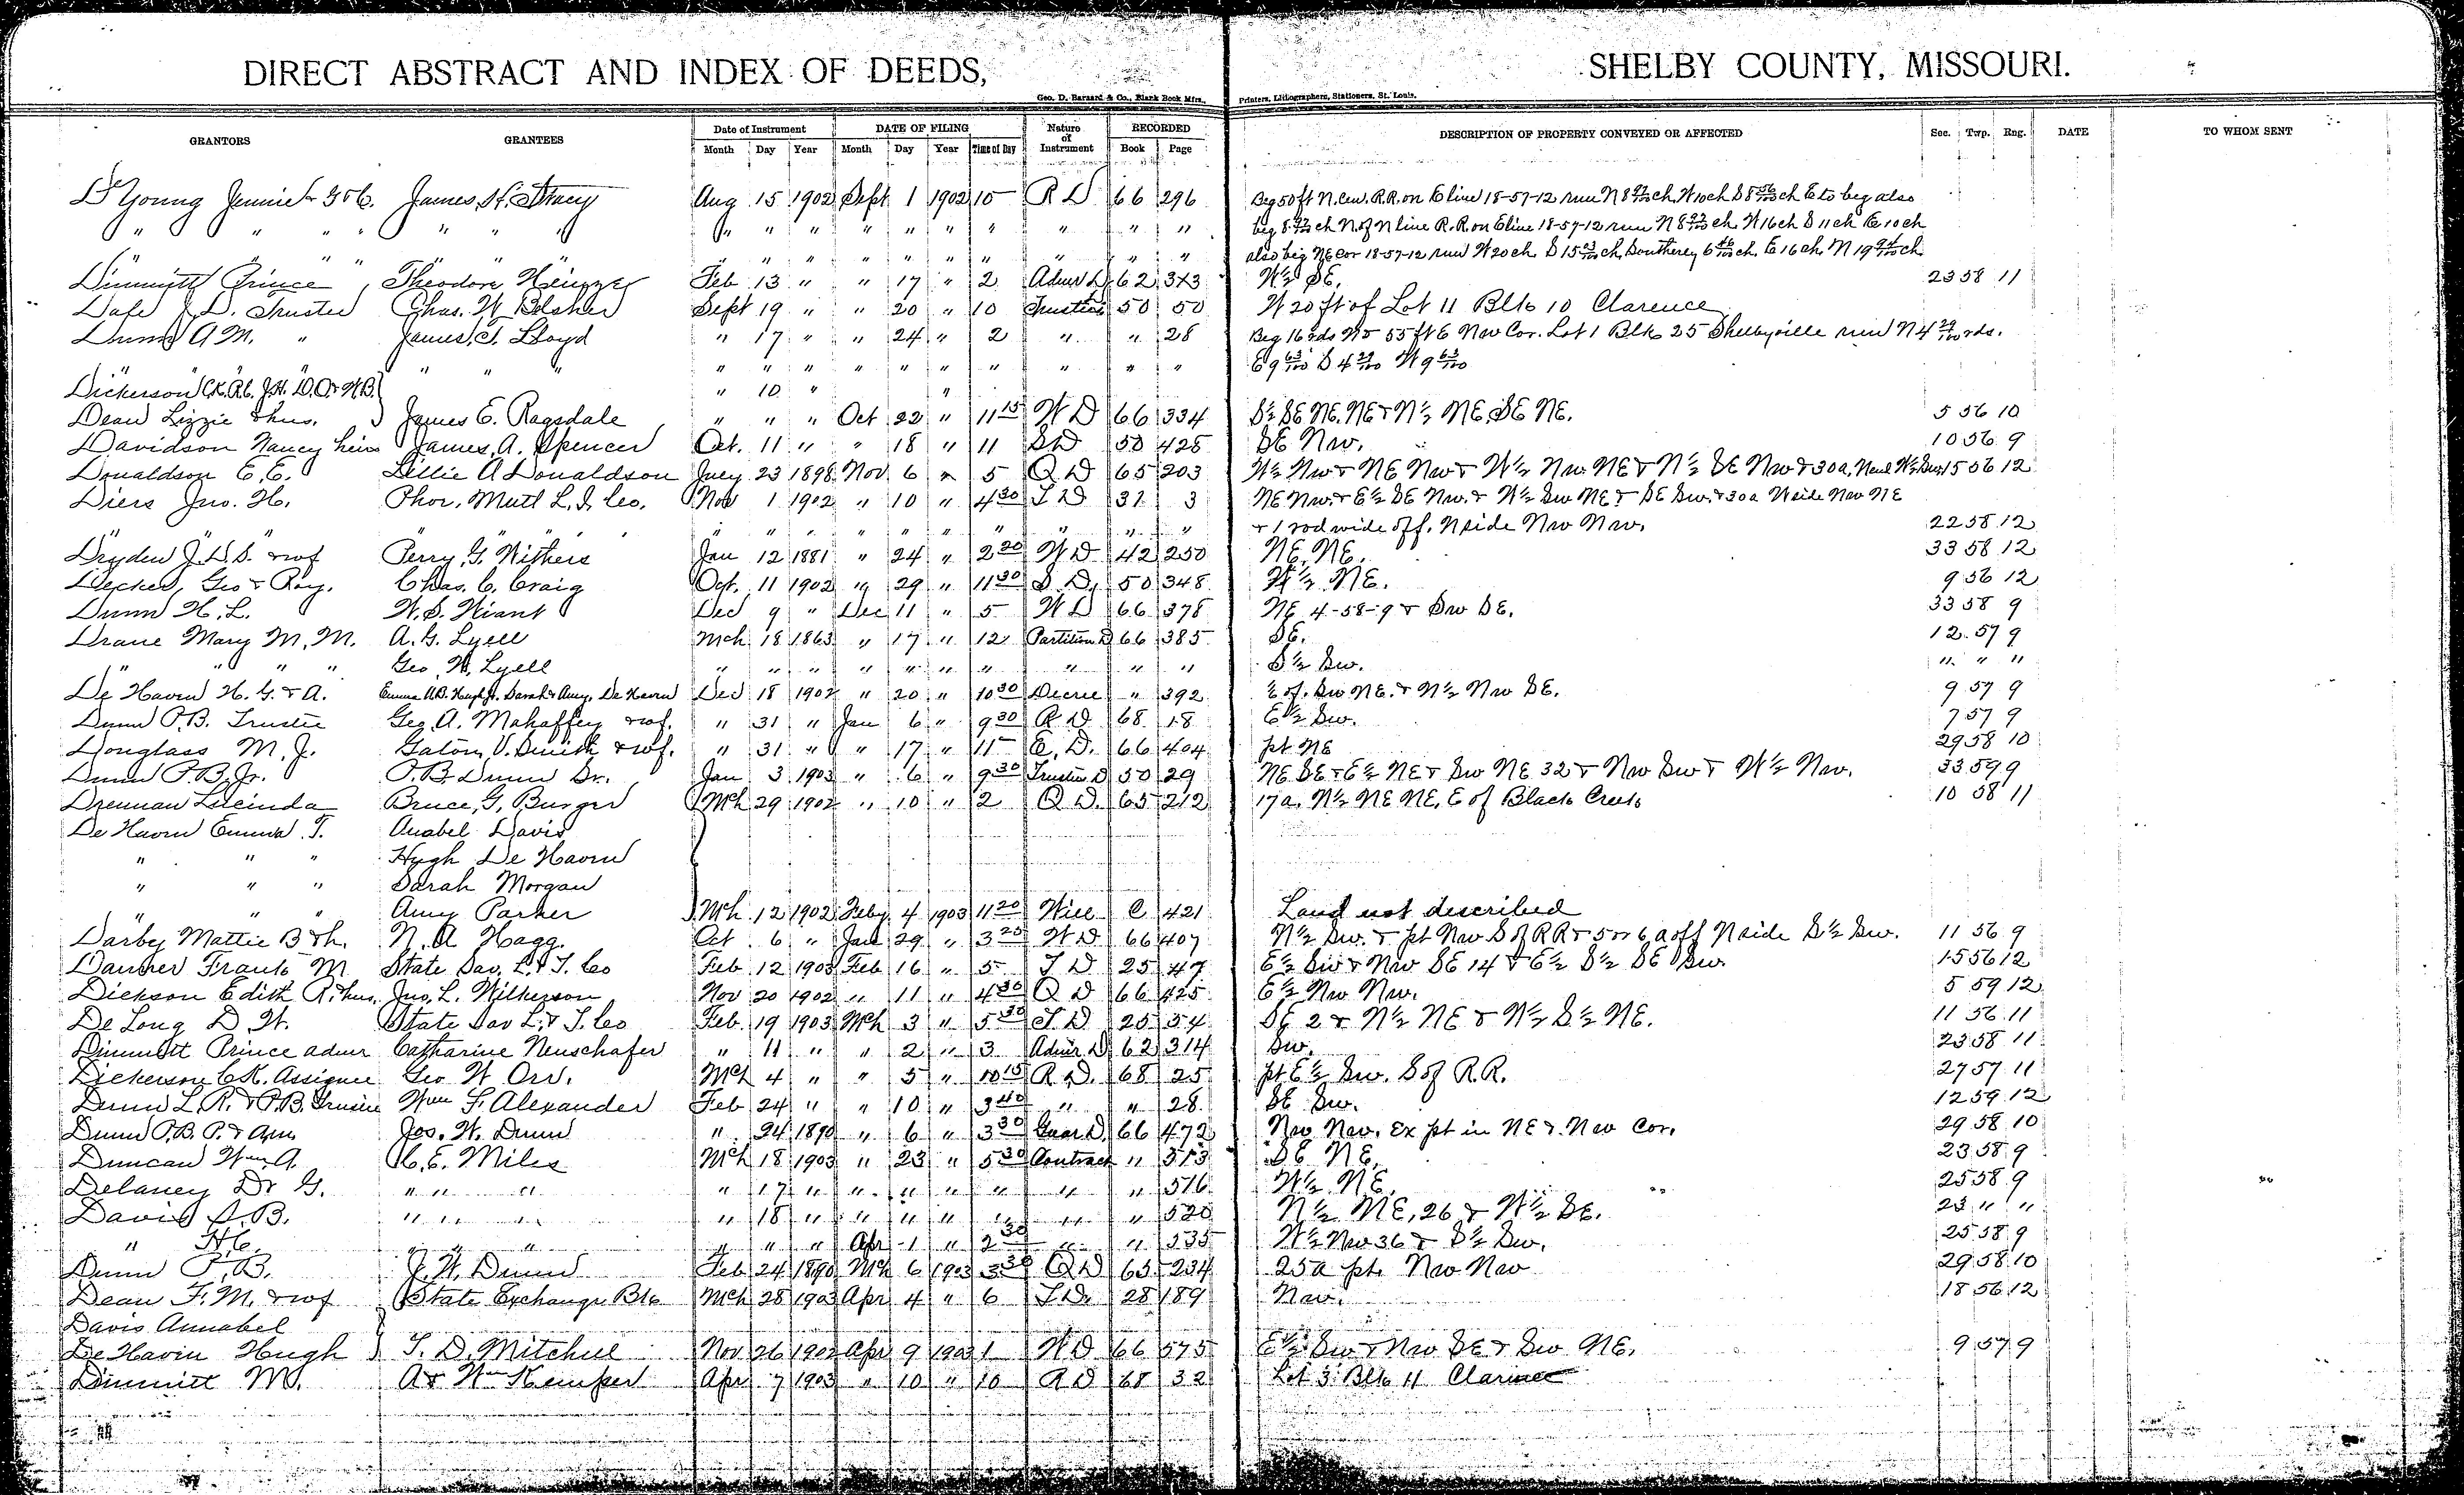 DIRECT ABSTRACT AND INDEX OF DEEDS, SHELBY COUNTY, MISSOURI.
Geo. D. Barnard & Co., Blank Book Mfrs., Printers, Lithographers, Stationers, St. Louis.
GRANTORS GRANTEES Date of Instrument DATE OF FILING Nature of Instrument RECORDED DESCRIPTION OF PROPERTY CONVEYED OR AFFECTED Sec. Twp. Rng. DATE TO WHOM SENT
Month Day Year Month Day Year Time of Day Book Page
Young Jennie James H. Aug 15 1902 Sept 1 1902 10 R D 66 296 Beg 50 ft N. Cen. R.R. on E line 18-57-12 run N 8 ch. W 10 ch S 8 ch E to beg also
" " " " " " " " " " " " " " " " beg 8 ch N. of N line R.R. on E line 18-57-12 run N 8 ch. W 16 ch S 11 ch E 10 ch
" " " " " " " " " " " " also beg NE cor 18-57-12 run W 20 ch. S 15 ch. Southerly 6 ch. E 16 ch. N 19 ch
Dimmitt Prince Theodore Feb 13 " " 17 " 2 Admr D 62 313 W½ SE. 23 58 11
Dale J. D. Trustee Chas. W. Belsher Sept 19 " " 20 " 10 Trustees 50 50 W 20 ft of Lot 11 Blk 10 Clarence
Dunn A M. " James T. Lloyd " 17 " " 24 " 2 " " 28 Beg 16 rds N 5 55 ft E Nw Cor. Lot 1 Blk 25 Shelbyville run N 4 29/100 rds.
" " " " " " " " " " " " E 9 63/100 S 4 29/100 W 9 63/100
Dickerson C.K. R.C. J.H. D.O. & W.B. " 10 " "
Dean Lizzie & hus. James E. Ragsdale " " " Oct 22 " 11 15 W D 66 334 S½ SE NE. NE & N½ NE, SE NE. 5 56 10
Davidson Nancy heirs James A. Spencer Oct. 11 " " 18 " 11 SD 50 428 SE Nw. 10 56 9
Donaldson E. E. Lillie A Donaldson July 23 1898 Nov. 6 " 5 Q D 65 203 W½ Nw & NE Nw & W½ Nw NE & N½ SE Nw & 30a. 15 56 12
Diers Jno. H. Phoe. Mutl L. I. Co. Nov 1 1902 " 10 " 4 30 T D 31 3 NE Nw. & E½ SE Nw. & W½ Sw NE & SE Sw. & 30a W side Nw NE
" " " " " " " " " " & 1 rod wide off. N side Nw Nw. 22 58 12
Dryden J. D. S. & wf Perry G. Withers Jan 12 1881 " 24 " 2 20 W D 42 250 NE, NE. 33 58 12
Decker, Geo & Ray. Chas. C. Craig Oct. 11 1902 " 29 " 11 30 S. D. 50 348 W½ NE. 9 56 12
Dunn H. L. W. S. Wiant Dec 9 " Dec 11 " 5 W D 66 378 NE 4-58-9 & Sw SE. 33 58 9
Drane Mary M. M. A. G. Lyell Mch 18 1863 " 17 " 12 Partition D 66 385 SE. 12 57 9
" " " " Geo. W. Lyell " " " " " " " " " " S½ Sw. " " "
De Haven H. G. & A. Emma A.B. Hugh H. Sarah & Amy De Haven Dec 18 1902 " 20 " 10 30 Decree " 392 ½ of Sw NE. & N½ Nw SE. 9 57 9
Dunn P.B. Trustee Geo. A. Mahaffey & wf. " 31 " Jan 6 " 9 30 R D 68 18 E½ Sw. 7 57 9
Douglass M. J. Gaton V. Smith & wf. " 31 " " 17 " 11 E. D. 66 404 pt NE 29 58 10
Dunn P. B. Jr. P. B. Dunn Sr. Jan 3 1903 " 6 " 9 30 Trustee D 50 29 NE SE & E½ NE & Sw NE 32 & Nw Sw & W½ Nw. 33 59 9
Drennan Lucinda Bruce G. Burger Mch 29 1902 " 10 " 2 Q D. 65 212 17a. N½ NE NE, E of Black Creek 10 58 11
De Haven Emma T. Anabel Davis
" " " Hugh De Haven
" " " Sarah Morgan
" " " Amy Parker Mch 12 1902 Feby 4 1903 11 20 Will C 421 Land not described
Darby Mattie B & h. N. A Hagg. Oct 6 " Jan 29 " 3 25 W D 66 407 N½ Sw. & pt Nw S of RR & 5 or 6 a off N side S½ Sw. 11 56 9
Danner Frank M State Sav. L. & T. Co Feb 12 1903 Feb 16 " 5 T D 25 47 E½ Sw & Nw SE 14 & E½ S½ SE Sw. 15 56 12
Dickson Edith R. & hus. Jno. L. Wilkerson Nov 20 1902 " 11 " 4 30 Q D 66 425 E½ Nw Nw. 5 59 12
De Long D. W. State Sav L. & T. Co Feb. 19 1903 Mch 3 " 5 30 T D 25 54 SE 2 & N½ NE & N½ S½ NE. 11 56 11
Dimmitt Prince admr Catharine Neuschafer " 11 " " 2 " 3 Admr D 62 314 Sw. 23 58 11
Dickerson C.K. Assignee Geo W Orr. Mch 4 " " 5 " 10 15 R D. 68 25 pt E½ Sw. S of R.R. 27 57 11
Dunn L. R. & P.B. Trustee Wm F. Alexander Feb 24 " " 10 " 3 40 " " 28 SE Sw. 12 59 12
Dunn P. B. P. & Ann Jos. W. Dunn " 24 1890 " 6 " 3 30 Guar D. 66 472 Nw Nw. Ex pt in NE & Nw Cor. 29 58 10
Duncan Wm A. C. E. Miles Mch 18 1903 " 23 " 5 30 Contract " 513 SE NE. 23 58 9
Delaney Dr G. " " " " 17 " " " " " " " 516 W½ NE. 25 58 9
Davis A. B. " " " " 18 " " " " " " " 520 N½ NE, 26 & W½ SE. 23 " "
" H. C. " " " " " " Apr 1 " 2 30 " " 535 W½ Nw 36 & S½ Sw. 25 58 9
Dunn P. B. J. W. Dunn Feb 24 1890 Mch 6 1903 3 30 Q D 65 234 25a pt. Nw Nw 29 58 10
Dean F. M. & wf State Exchange Bk Mch 28 1903 Apr 4 " 6 T D. 28 189 Nw. 18 56 12
Davis Annabel
De Haven Hugh T. D. Mitchell Nov 26 1902 Apr 9 1903 1 W D 66 575 E½ Sw & Nw SE & Sw NE. 9 57 9
Dimmitt M. A & Wm Kemper Apr 7 1903 " 10 " 10 R D 68 32 Lot 3 Blk 11 Clarence